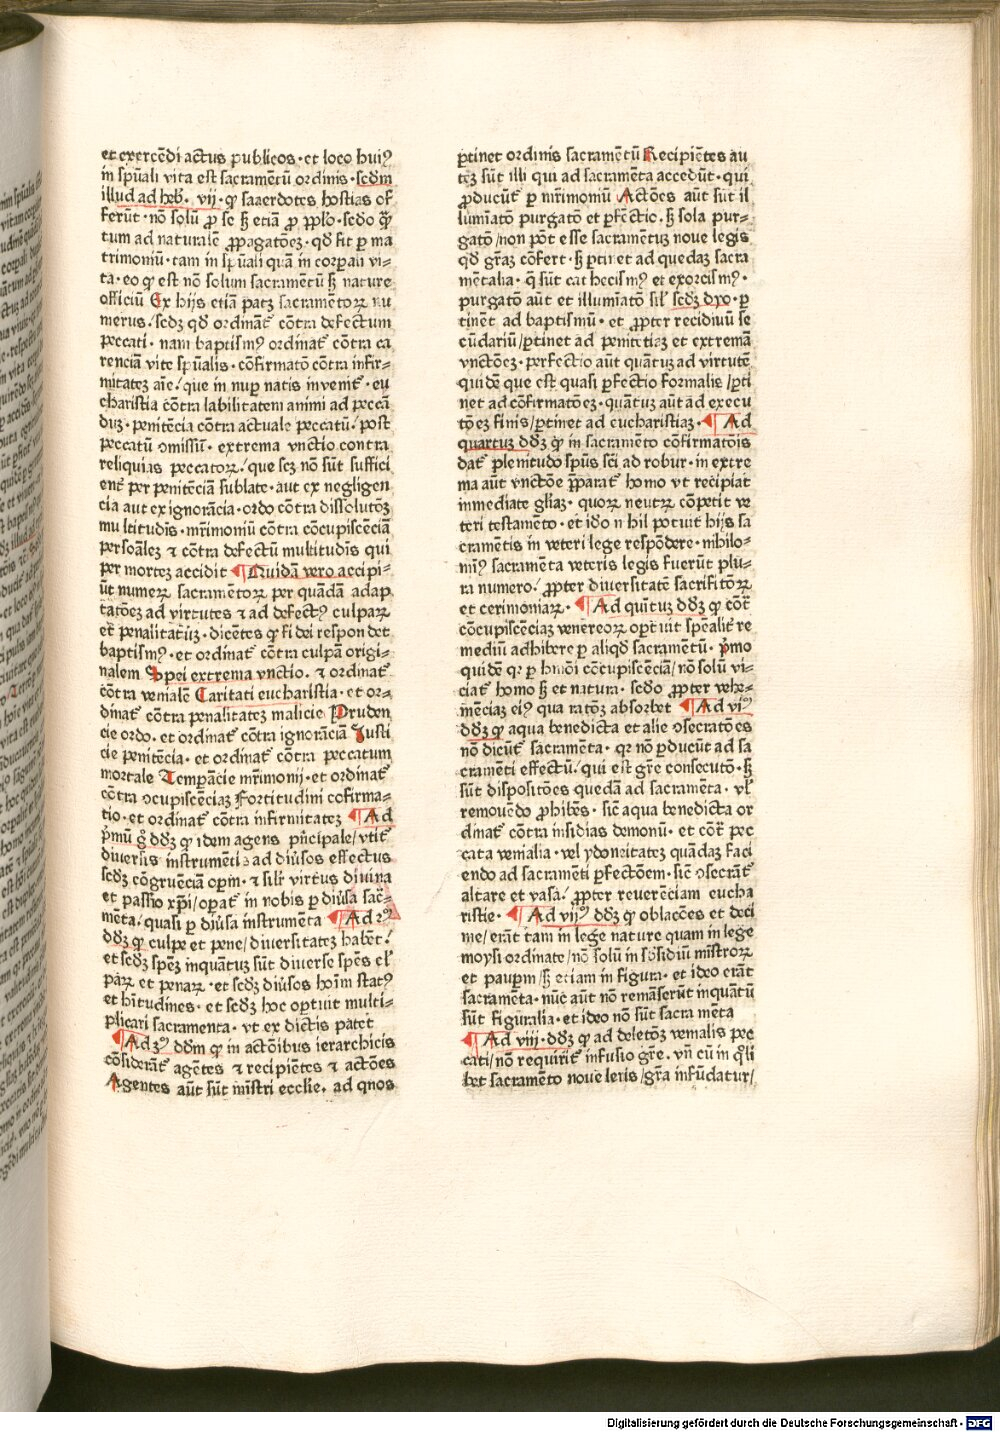 et exercēdi actus publicos · et loco huiꝰ
in spūali vita est sacramētū ordinis · scdm
illud ad heb. vij · qꝫ sacerdotes hostias of
ferūt · nō solū ꝓ se sꝫ etiā ꝓ pplo · scdo q̄
tum ad naturalē ꝓpagatōeꝫ · qd̄ fit ꝑ ma
trimoniū · tam in spūali quā in corpali vi-
ta · eo qꝫ est nō solum sacramētū sꝫ nature
officiū Ex hijs etiā patꝫ sacramētoꝝ nu
merus / scdꝫ qd̄ ordinat̄ cōtra defectum
peccati · nam baptismꝰ ordinat̄ contra ca
renciā vite spūalis · cōfirmato cōtra infir-
mitateꝫ aīe / que in nuꝑ natis invenit̄ · eu
charistia cōtra labilitatem animi ad peccā
duꝫ · penitēcia cōtra actuale peccatū / post
peccatū ↄmissū · extrema vnctio contra
reliquias peccatoꝝ / que scꝫ nō sūt suffici
ent̄ per penitēciā sublate · aut ex negligen
cia aut ex ignorācia · ordo cōtra dissolutōꝫ
multitudīs · mr̄imoniū cōtra cōcupiscēciā
persoāleꝫ ⁊ cōtra defectū multitudīs qui
per morteꝫ accidit ¶ Quidā vero accipi-
ūt numeꝝ sacramētoꝝ per quādā adap
tatōeꝫ ad virtutes ⁊ ad defectꝰ culpaꝝ
et penalitatuꝫ · dicētes qꝫ fidei respondet
baptismꝰ · et ordinat̄ cōtra culpā origi-
nalem Spei extrema vnctio · ⁊ ordinat̄
cōtra venialē Caritati eucharistia · et or-
dinat̄ cōtra penalitateꝫ malicie Pruden
cie ordo · et ordinat̄ cōtra ignorāciā Justi
cie penitēcia · et ordinat̄ cōtra peccatum
mortale Temperācie mr̄imonij · et ordinat̄
cōtra ↄcupiscēciaꝫ Fortitudini cōfirma-
tio · et ordinat̄ cōtra infirmitateꝫ ¶ Ad
pꝰmū g̊ dꝫ qꝫ idem agens pꝰncipale / vtit̄
diversis instrumētis ad diūsos effectus
scdꝫ cōgruēciā opm̄ · ⁊ silr̄ virtus divina
et passio xp̄i / opat̄ in nobis ꝑ diūsa sac̄-
mēta / quasi ꝑ diūsa instrumēta ¶ Ad 2ꝰ
dd̄ꝫ qꝫ culpe et pene / diversitateꝫ habēt /
et scdꝫ speꝫ inquātuꝫ sūt diverse spēs cul
paꝝ et penaꝝ · et scdꝫ diūsos hoīm statꝰ
et hītudines · et scdꝫ hoc optuit multi-
plicari sacramenta · vt ex dictis patet
¶ Ad 3ꝰ dd̄m qꝫ in actōibus ierarchicis
cōsiderāt̄ agētes ⁊ recipiētes ⁊ actōes
Agentes aūt sūt mīstri ecclīe · ad quos
ꝑtinet ordinis sacramētū Recipiētes au
teꝫ sūt illi qui ad sacramēta accedūt · qui
ꝓducūt̄ ꝑ mr̄imoniū Actōes aūt sūt il
lumīato purgato et ꝑfectio · sꝫ sola pur-
gato / non pōt esse sacramētuꝫ nove legis
qd̄ grāꝫ cōfert · sꝫ ꝑtinet ad quedaꝫ sacra
mētalia · q̄ sūt cathecismꝰ et exorcismꝰ ·
purgato aūt et illumīato sil̄ scdꝫ dyo · ꝑ
tinēt ad baptismū · et ꝓpter recidiuū se
cūdariū / ꝑtinet ad penitētiaꝫ et extremā
vnctōeꝫ · perfectio aūt quātuꝫ ad virtutē
quidē que est quasi ꝑfectio formalis / ꝑti
net ad cōfirmatōeꝫ · quātuꝫ aūt ad execu
tōeꝫ finis / ꝑtinet ad eucharistiaꝫ · ¶ Ad
quartuꝫ dd̄ꝫ qꝫ in sacramēto cōfirmatōis
dat̄ plenitudo spūs sc̄i ad robur · in extre
ma aūt vnctōe ꝑparat̄ homo vt recipiat
immediate gliaꝫ · quoꝝ neutꝝ cōpetit ve
teri testamēto · et ido nihil potuit hijs sa
cramētis in veteri lege respōdere · nihilo-
minꝰ sacramēta veteris legis fuerūt plu-
ra numero / ꝓpter diversitatē sacrificioꝝ
et cerimoniaꝝ · ¶ Ad quītuꝫ dd̄ꝫ qꝫ cōt̄
cōcupiscēciaꝫ venereoꝝ optuit spēalit̄ re
mediū adhibere ꝑ aliqd̄ sacramētū · pꝰmo
quidē qꝛ ꝑ hm̄oi cōcupiscēciā / nō solū vi-
ciat̄ homo sꝫ et natura · scdo ꝓpter vehe-
mēciaꝫ eiꝰ qua ratōꝫ absorbet ¶ Ad viꝰ
dd̄ꝫ qꝫ aqua benedicta et alie ↄsecratōes
nō dicūt̄ sacramēta · qꝛ nō ꝑducūt ad sa
cramēti effectū / qui est gr̄e consecutō · sꝫ
sūt dispositōes quedā ad sacramēta · vl̄
removēdo ꝓhibēs · sic̄ aqua benedicta or
dinat̄ cōtra insidias demonū · et cōt̄ pec
cata venialia · vel ydoneitateꝫ quādaꝫ faci
endo ad sacramēti ꝑfectōem · sic̄ ↄsecrāt̄
altare et vasa / ꝓpter reverēciam eucha
ristie · ¶ Ad vijꝰ dd̄ꝫ qꝫ oblacōes et deci
me / erāt tam in lege nature quam in lege
moysi ordinate / nō solū in sb̄sidiū mīstroꝝ
et paupm̄ / sꝫ etiam in figura · et ideo erāt
sacramēta · nūc aūt nō remāserūt inquātū
sūt figuralia · et ideo nō sūt sacramēta
¶ Ad viij · dd̄ꝫ qꝫ ad deletōꝫ venialis pec
cati / nō requirit̄ infusio gr̄e · vn̄ cū in q̄li
bet sacramēto nove legis / gr̄a infūdatur /
Digitalisierung gefördert durch die Deutsche Forschungsgemeinschaft · DFG